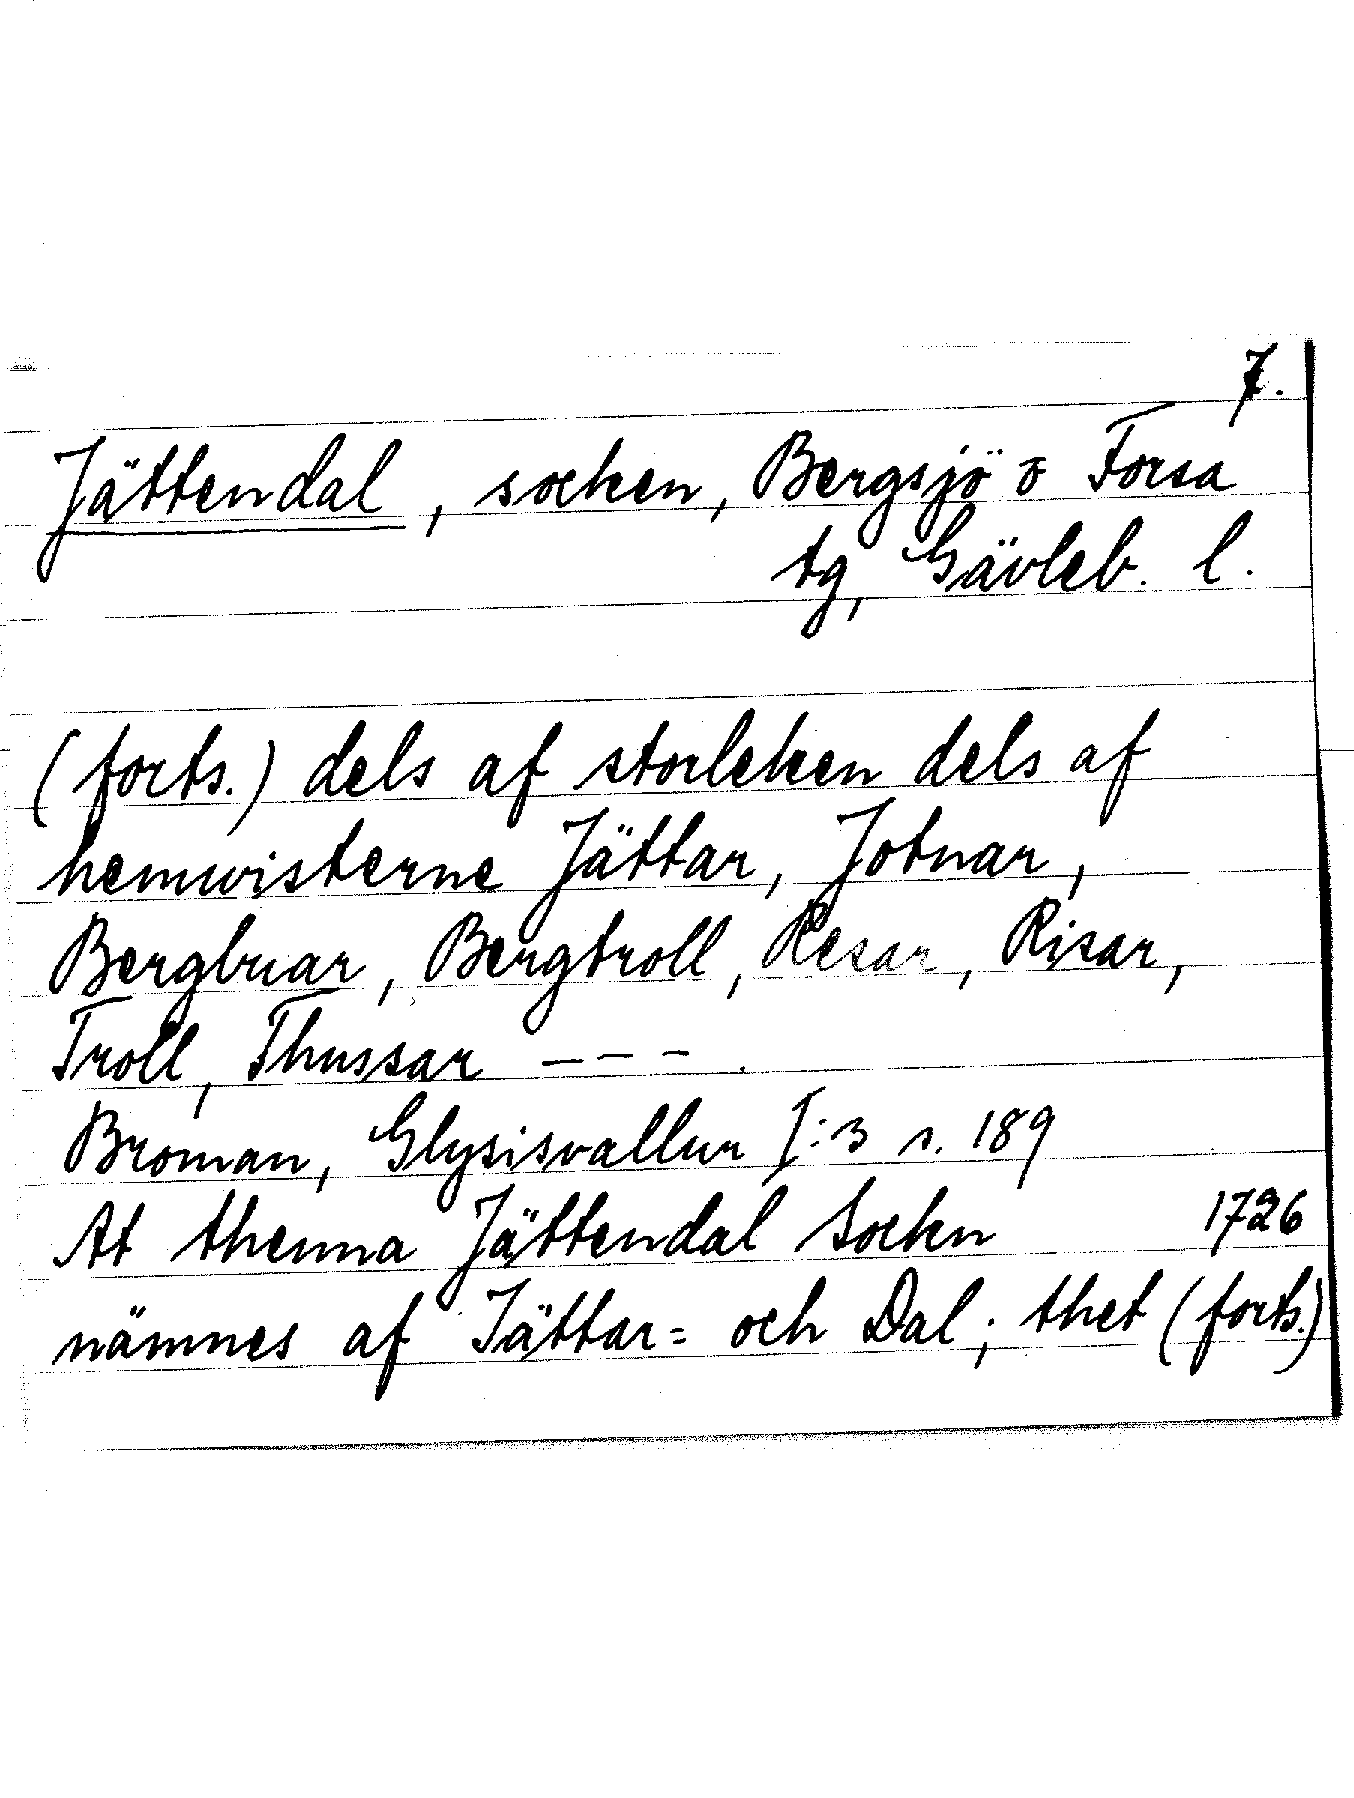 7.
Jättendal, socken, Bergsjö o Forsa
tg, Gävleb. l.
(forts.) dels af storleken dels af
hemwisterne Jättar, Jotnar,
Bergbuar, Bergtroll, Resar, Risar,
Troll, Thussar ---.
Broman, Glysisvallur I:3 s. 189
At thenna Jättendal Sockn 1726
nämnes af Jättar= och Dal; thet (forts.)